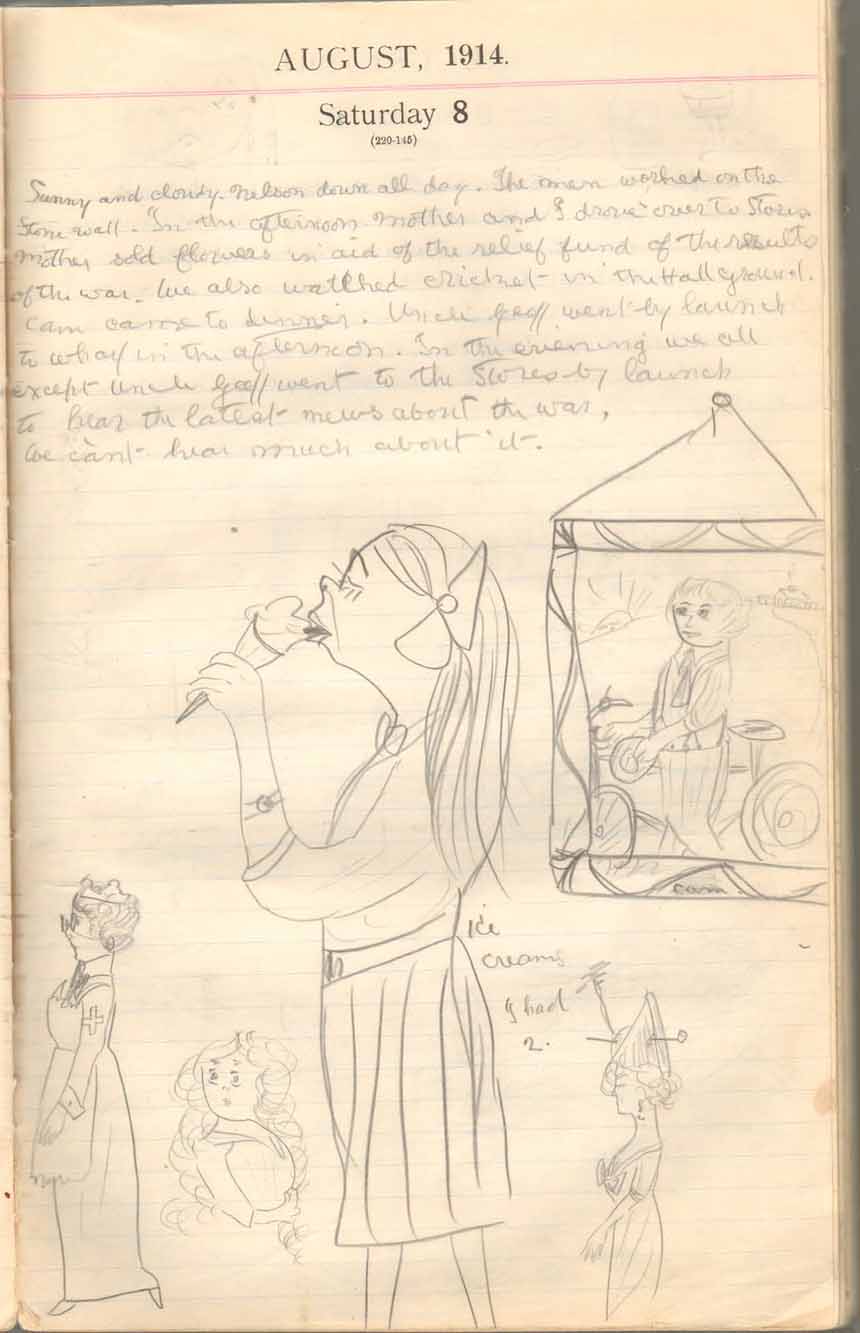 AUGUST, 1914.
Saturday 8
(220-145)
Sunny and cloudy. Nelson down all day. The men worked on the
stone wall. In the afternoon mother and I drove over to Stores
mother sold flowers in aid of the relief fund of the results
of the war. We also watched cricket in the Hall ground.
Cam came to dinner. Uncle Geoff went by launch
to wharf in the afternoon. In the evening we all
except Uncle Geoff went to the Stores by launch
to hear the latest news about the war,
we can't hear much about it.
cam.
ice
creams
I had
2.